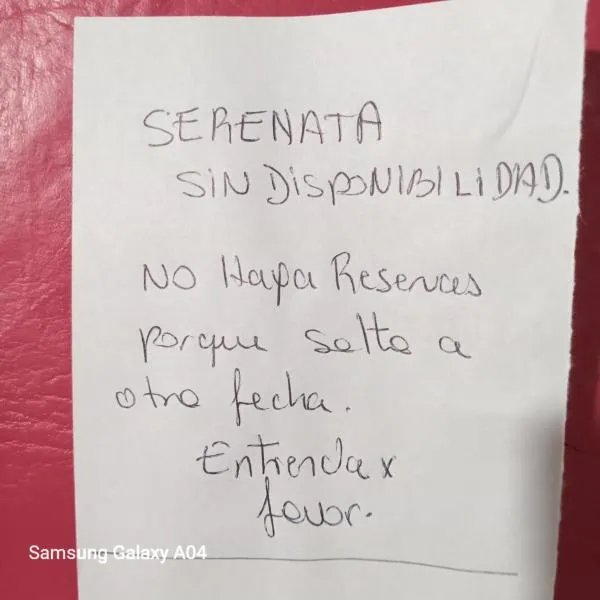 SERENATA
SIN DISPONIBILIDAD.
NO Haga Reservas
porque salta a
otra fecha.
Entienda x
favor.
Samsung Galaxy A04